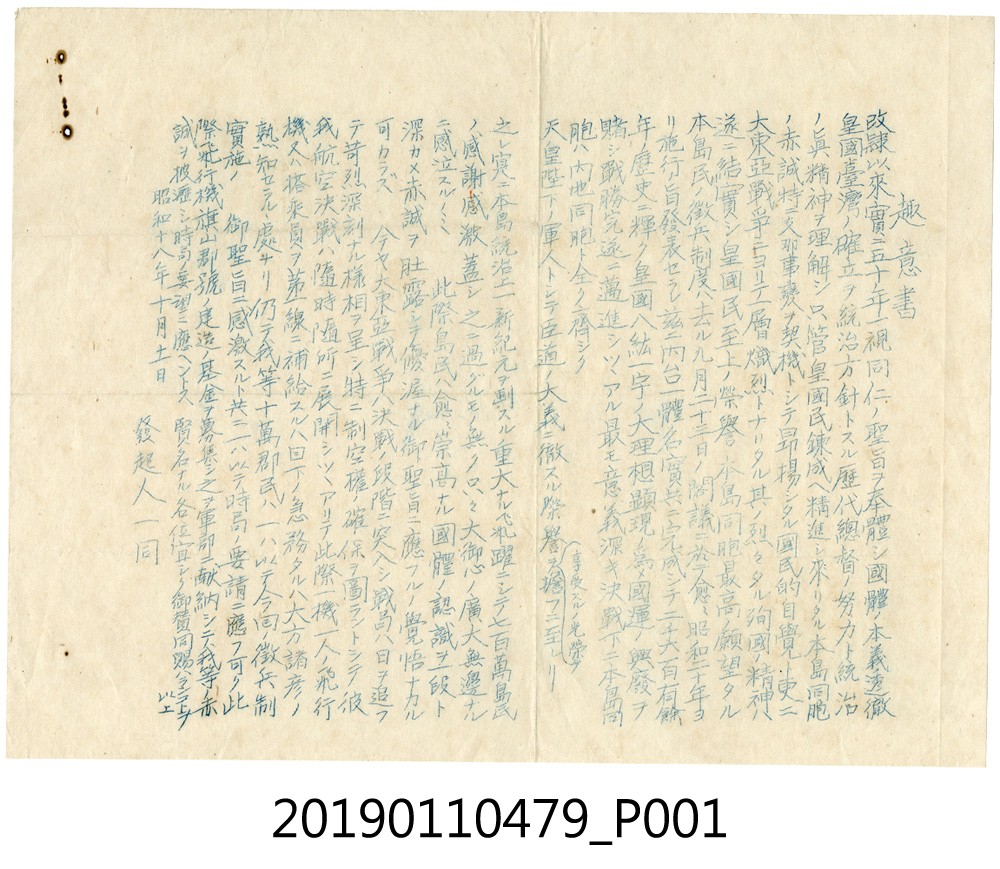 趣意書
改隷以來實ニ五十年一視同仁ノ聖旨ヲ奉體シ國體ノ本義透徹
皇國臺灣ノ確立ヲ統治方針トスル歴代總督ノ努力ト統治
ノ眞精神ヲ理解シ只管皇國民錬成ヘ精進シ來リタル本島同胞
ノ赤誠特ニ支那事變ヲ契機トシテ昂揚シタル國民的自覺ト更ニ
大東亞戰爭ニヨリ一層熾烈トナリタル其ノ烈々タル殉國ノ精神ハ
遂ニ結實シ皇國民至上ノ榮譽、本島同胞最高ノ願望タル
本島民ノ徴兵制度ハ去ル九月二十三日ノ閣議ニ於愈々昭和二十年ヨ
リ施行旨發表セラレ茲ニ内台一體名實共ニ完成シテ二千六百有餘
年ノ歴史ニ輝ク皇國八紘一宇ノ大理想顯現ノ為國運ノ興廢ヲ
賭シ戰勝完遂ニ邁進シツヽアル最モ意義深キ決戰下ニ本島同
胞ハ内地同胞ト全ク齊シク
天皇陛下ノ軍人トシテ臣道ノ大義ニ徹スル榮譽ヲ擔フニ至レリ
(享受スル光榮ヲ
之レ寔ニ本島統治上一新紀元ヲ劃スル重大ナル飛躍ニシテ七百萬島民
ノ感謝感激蓋シ之ニ過グルモノ無ク只々大御心ノ廣大無邊ナル
ニ感泣スルノミ 此際島民ハ愈々崇高ナル國體ノ認識ヲ一段ト
深カメ赤誠ヲ吐露シテ優渥ナル御聖旨ニ應フルノ覺悟ナカル
可カラズ 今ヤ大東亞戰爭ハ決戰ノ段階ニ突入シ戰局ハ日ヲ追フ
テ苛烈深刻ナル様相ヲ呈シ特ニ制空權確保ヲ圖ラントシテ彼
我ノ航空決戰ハ隨時隨所ニ展開シツヽアリテ此際一機一人ノ飛行
機又ハ搭乘員ヲ第一線ニ補給スルハ目下ノ急務タルハ大方諸彦ノ
熟知セラルヽ處ナリ 仍テ我等十萬郡民ハ一ハ以テ今回ノ徴兵制
實施ノ 御聖旨ニ感激スルト共ニ一ハ以テ時局ノ要請ニ應フ可ク此
際飛行機旗山郡號ノ建造ノ基金ヲ募集シ之ヲ軍部ニ献納シテ我等ノ赤
誠ヲ披瀝シ時局ノ要望ニ應ヘントス 賢名ナル各位宜シク御賛同賜ハランコトヲ
以上
昭和十八年十月十一日
發起人一同
20190110479_P001